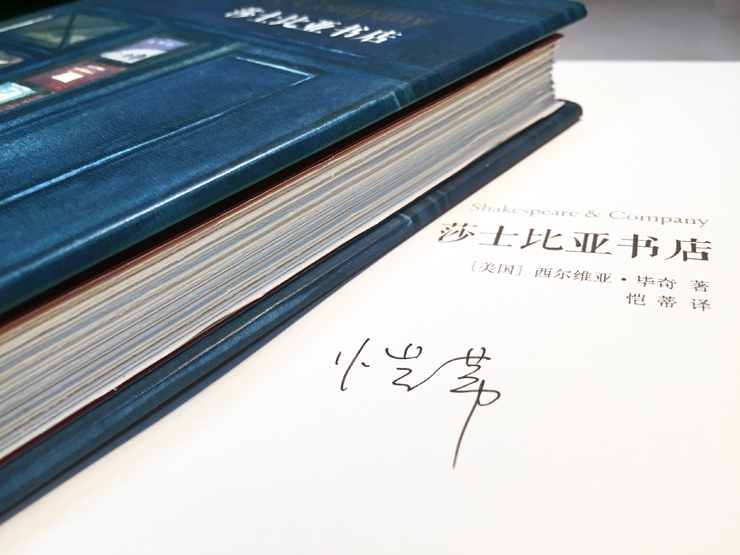 Company
莎士比亚书店
Shakespeare & Company
莎士比亚书店
[美国] 西尔维亚·毕奇 著
恺蒂 译
恺蒂